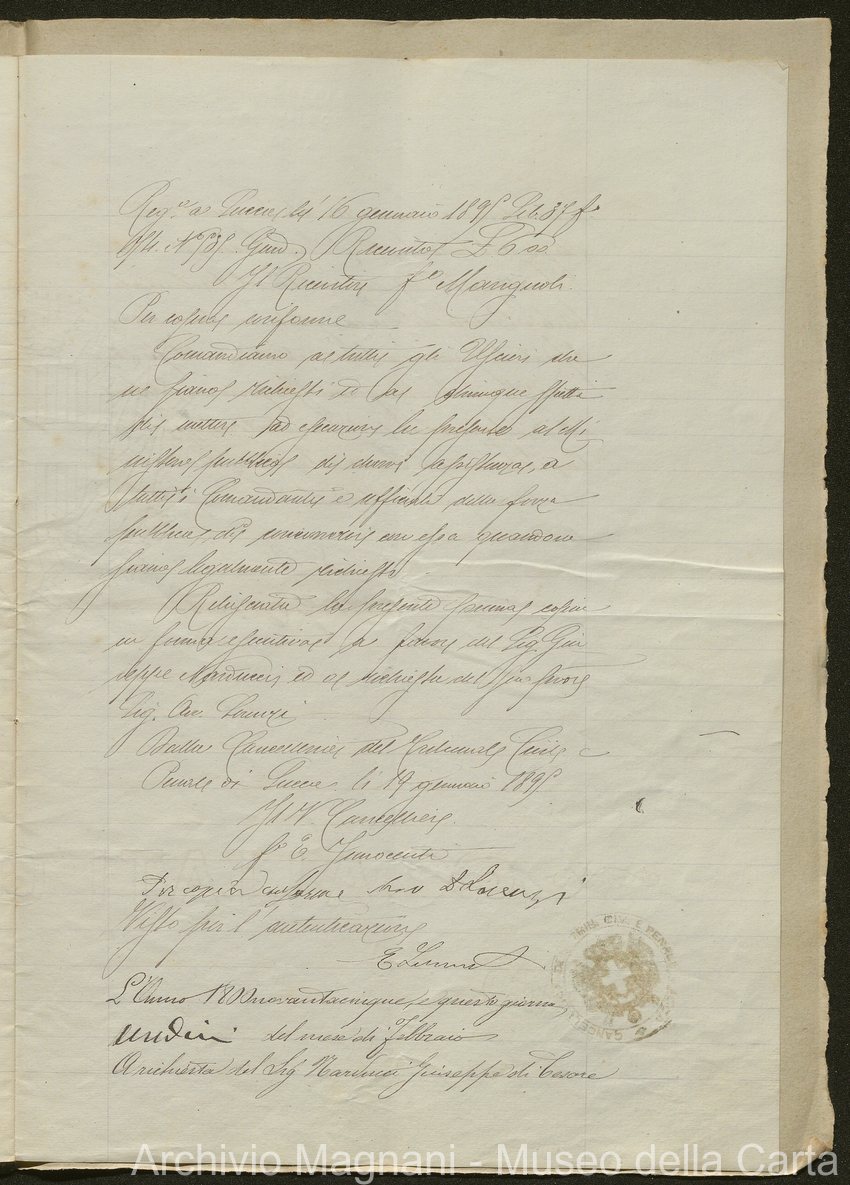 Reg.º a Lucca li 16 gennaio 1895 Lib. 37 fº
Att. Nº Giud. Ricevute £
Il Ricevitore fº Mangnoli
Per copia uniforme
Comandiamo a tutti gli Uscieri che
ne siano richiesti ed a chiunque spetti
di mettere ad esecuzione la presente al Mi
nistero pubblico di darvi assistenza, a
tutti i Comandanti e ufficiali della forza
pubblica di concorrervi con essa quando ne
siano legalmente richiesti
Rilasciata la presente prima copia
in forma esecutiva a favore del Sig. Giu
seppe Narducci ed a richiesta del suo proc
Sig. Av. Lorenzi
Dalla Cancelleria del Tribunale Civile e
Penale di Lucca li 19 gennaio 1895
Il V. Cancelliere
fº E. Innocenti
Per copia conforme Avv D Lorenzi
Visto per l'autenticazione
L'Anno 1800novantacinque e questo giorno
undici del mese di Febbraio
A richiesta del Sig Narducci Giuseppe di Cesare
TRIB. CIV. E PENALE
Archivio Magnani - Museo della Carta